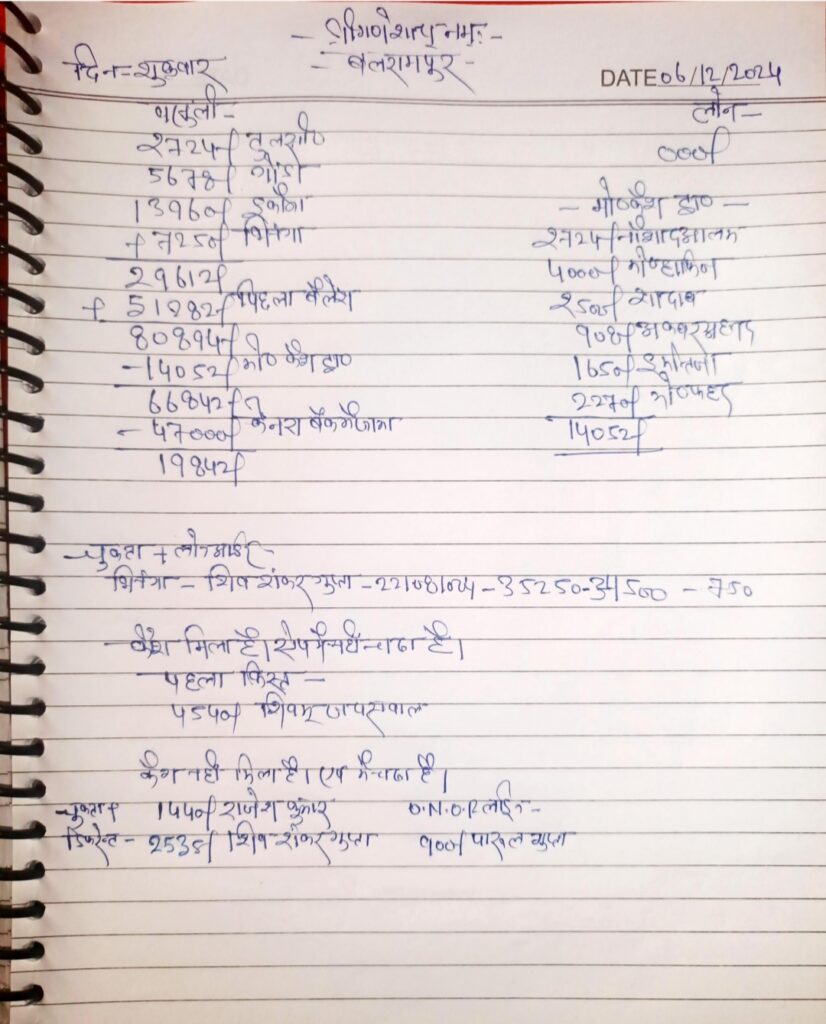 - श्री गणेशाय नमः -
दिन - शुक्रवार
- बलरामपुर -
DATE 06/12/2024
वसूली -
2724/ तुलसी०
5678/ गोंडा
13960/ इकौना
+ 7250/ भिनगा
29612/
+ 51282/ पिछला बैलेंस
80894/
- 14052/ मो० कैश द्वा०
66842/
- 47000/ केनरा बैंक में जमा
19842/
लोन -
000/
- मो० कैश द्वा० -
2724/ नौशाद आलम
4000/
2500/ शादाब
908/ अकबर अहमद
1650/
2270/ मो० फहद
14052/
चुकता + लोन आई० -
भिनगा - शिव शंकर गुप्ता - 22108/024 - 35250 - 34500 - 750
- कैश मिला है। ऐप में नहीं चढा है।
- पहला किस्त -
4540/ शिवम् जायसवाल
कैश नहीं मिला है। एप में चढा है।
चुकता + 1440/ राजेश कुमार
डिफरेन्ट - 2535/ शिव शंकर गुप्ता
O.N.O.R लाईन -
900/ पारुल गुप्ता